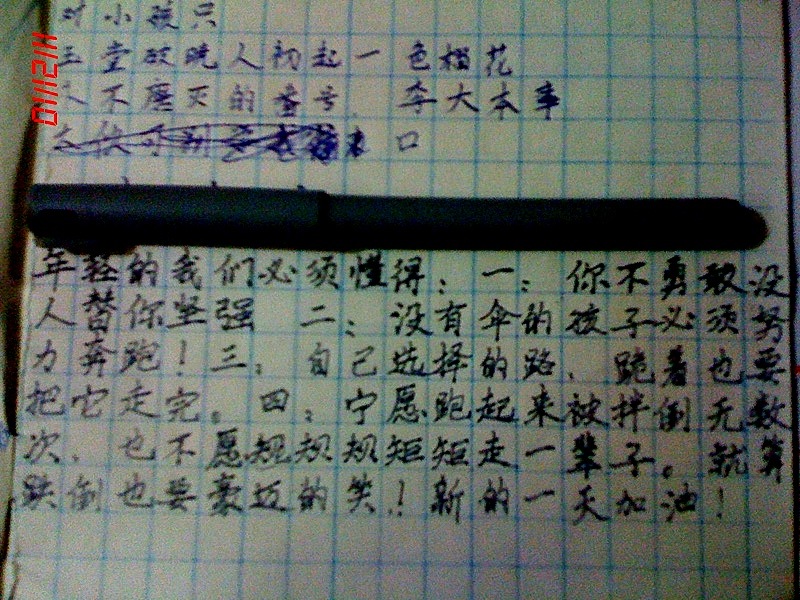 对小孩只
玉堂破晓人初起一色稻花
人不磨灭的番号 李大本事
口
年轻的我们必须懂得：一：你不勇敢没
人替你坚强 二：没有伞的孩子必须努
力奔跑！三：自己选择的路、跪着也要
把它走完。四：宁愿跑起来被拌倒无数
次、也不愿规规规矩矩走一辈子。就算
跌倒也要豪迈的笑！新的一天加油！